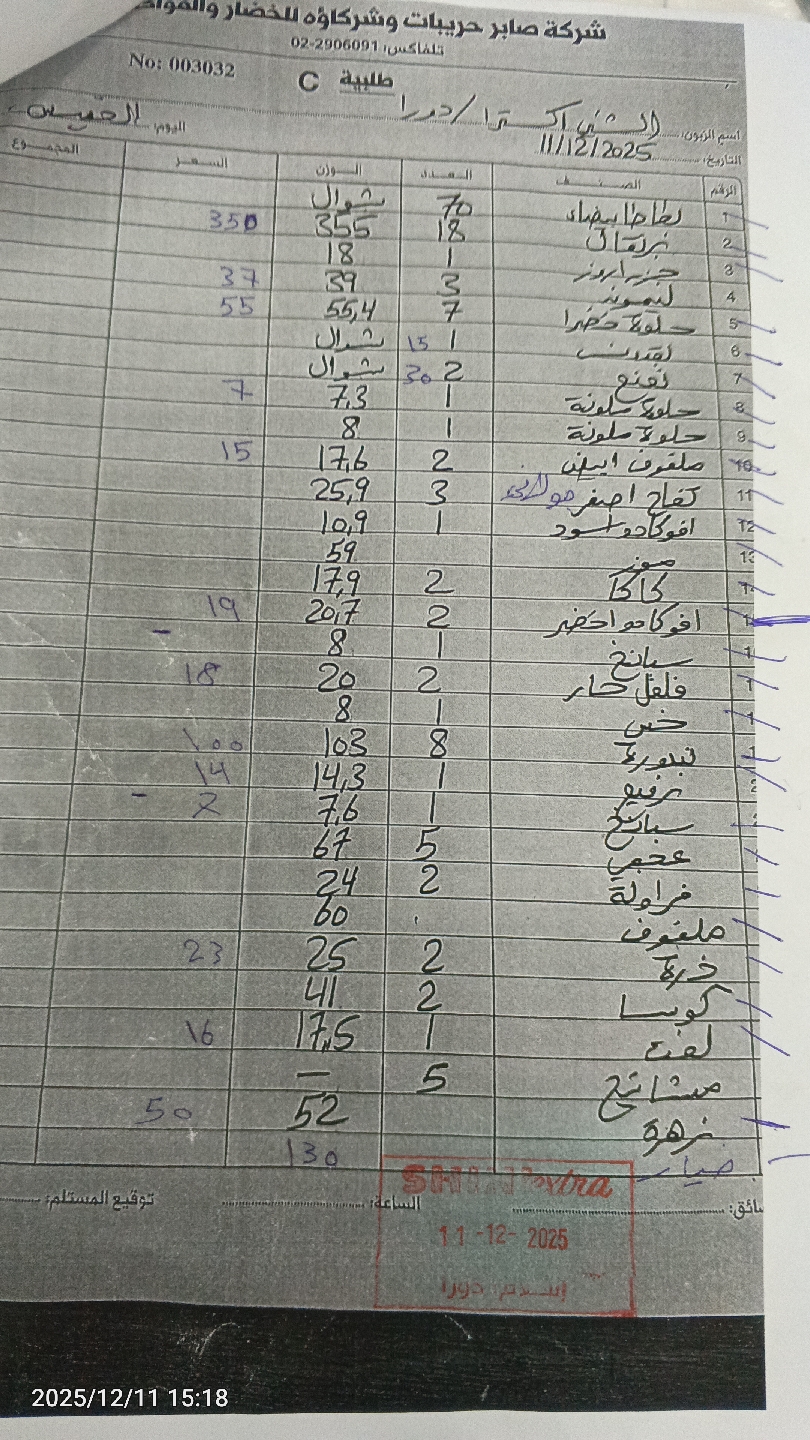 شركة صابر حريبات وشركاؤه للخضار والفواكه
تلفاكس: 02-2906091
No: 003032 طلبية C
اسم الزبون: الشني اكسترا / دورا اليوم: الخميس
التاريخ: 11/12/2025
الرقم الصنف العدد الوزن السعر المجموع
1 بطاطا بيضاء 70 شوال
2 برتقال 18 355 350
3 جزر اروز 1 18
4 ليمون 3 39 37
5 حلوة خضرا 7 55,4 55
6 بقدونس 1 15 شوال
7 نعنع 2 30 شوال
8 حلوة ملونة 1 7,3 7
9 حلوة ملونة 1 8
10 ملفوف ابيض 2 17,6 15
11 تفاح اصفر 3 25,9
12 افوكادو اسود 1 10,9
13 موز 59
كاكا 2 17,9
افوكادو اخضر 2 20,7 19
سبانخ 1 8 -
فلفل حار 2 20 18
خس 1 8
بندورة 8 103 100
1 14,3 14
سبانخ 1 7,6 7 -
عجمي 5 67
فراولة 2 24
ملفوف 60
ذرة 2 25 23
كوسا 2 41
لفت 1 17,5 16
مشاتيح 5 —
زهرة 52 50
خيار 130
سائق: الساعة: توقيع المستلم:
Extra
11-12-2025
دورا
2025/12/11 15:18